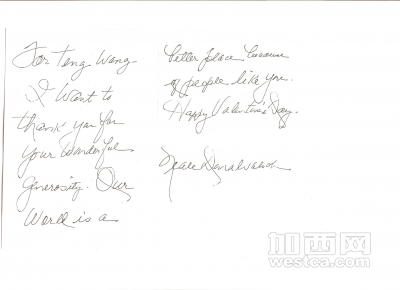 For Teng Wang
I Want to
thank you for
your wonderful
generosity. Our
World is a
better place because
of people like you.
Happy Valentine's Day.
Neale Donald Walsch
加西网
westca.com